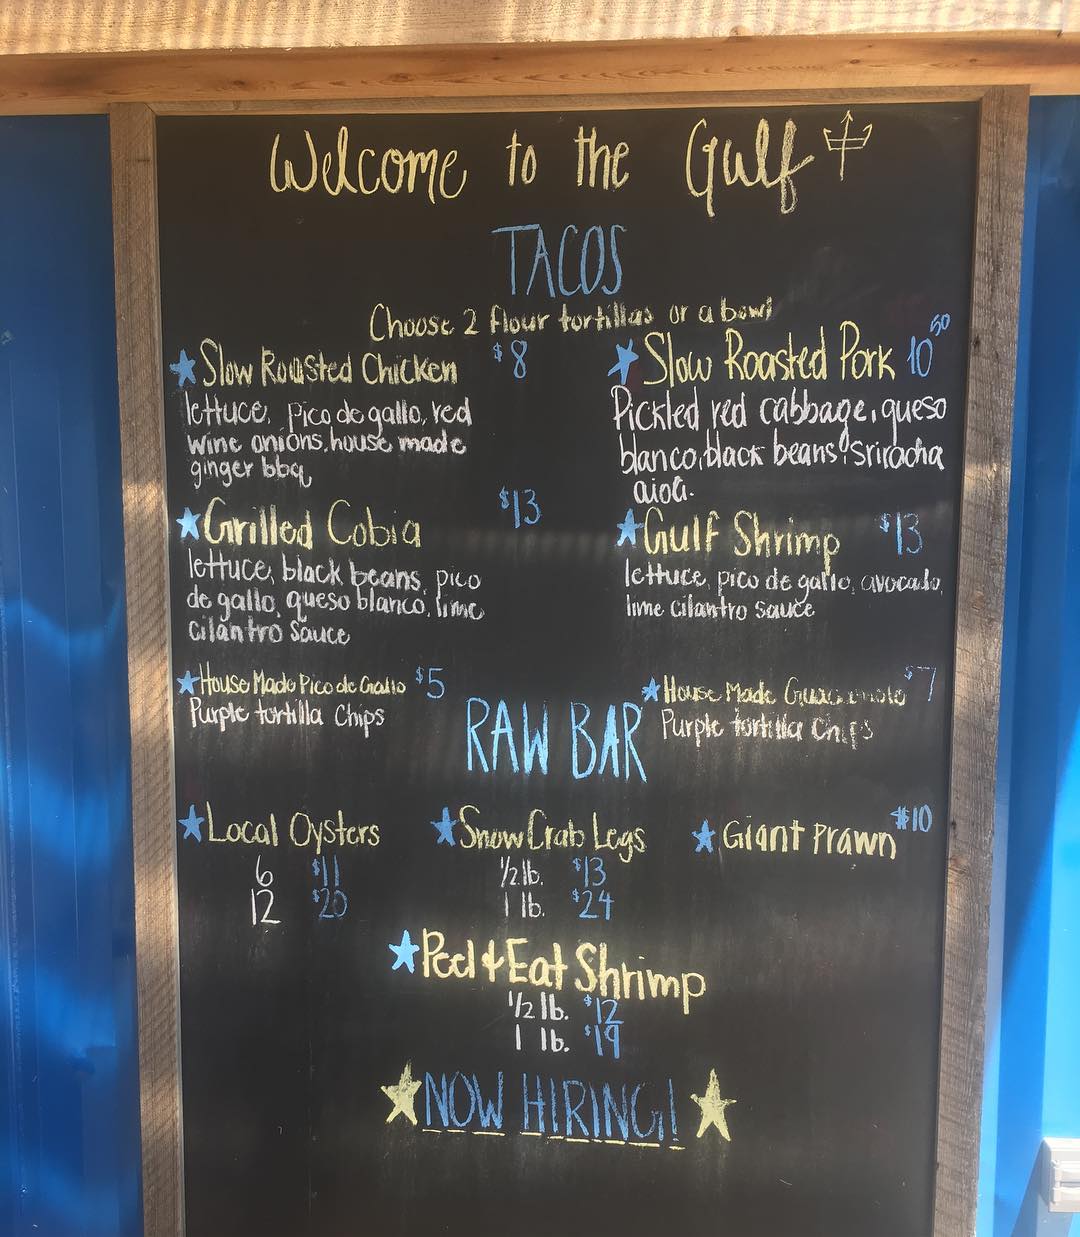 Welcome to the Gulf
TACOS
Choose 2 flour tortillas or a bowl
Slow Roasted Chicken $8
lettuce, pico de gallo, red
wine onions, house made
ginger bbq
Slow Roasted Pork 10 50
Pickled red cabbage, queso
blanco, black beans, sriracha
aioli.
Grilled Cobia $13
lettuce, black beans, pico
de gallo, queso blanco, lime
cilantro sauce
Gulf Shrimp $13
lettuce, pico de gallo, avocado,
lime cilantro sauce
House Made Pico de Gallo $5
Purple tortilla Chips
House Made Guacamole $7
Purple tortilla Chips
RAW BAR
Local Oysters
6 $11
12 $20
Snow Crab Legs
1/2 lb. $13
1 lb. $24
Giant Prawn $10
Peel + Eat Shrimp
1/2 lb. $12
1 lb. $19
NOW HIRING!